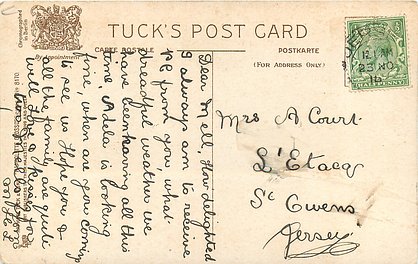 TUCK'S POST CARD
CARTE POSTALE
POSTKARTE
(FOR ADDRESS ONLY.)
Chromographed in Berlin
By Appointment
JERSEY
12
25 NO
Dear Nell, How delighted
I always am to receive
P.C from you, what
dreadful weather we
have been having all this
time, Adela is looking
fine, when are you coming
to see us Hope you &
all the family are quite
well Love & kisses for
Mrs A Court
L'Etacq
St Owens
Jersey